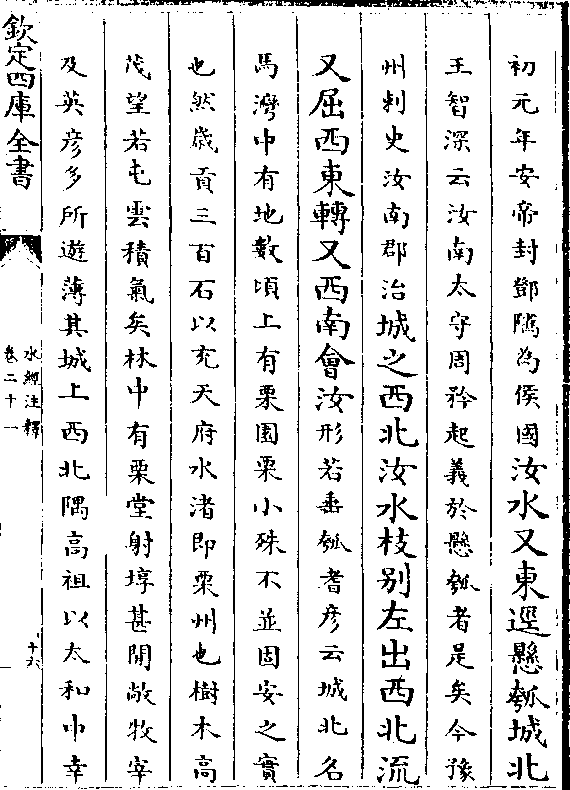 初元年安帝封鄧隲為侯國汝水又東逕懸瓠城北
王智深云汝南太守周矜起義於懸瓠者是矣今豫
州刺史汝南郡治城之西北汝水枝别左出西北流
又屈西東轉又西南會汝形若垂瓠耆彦云城北名
馬灣中有地數頃上有栗園栗小殊不並固安之實
也然歲貢三百石以充天府水渚即栗州也樹木高
茂望若屯雲積氣矣林中有栗堂射埻甚閒敞牧宰
及英彦多所遊薄其城上西北隅高祖以太和中幸
欽定四庫全書
水經注釋
卷二十一
十六